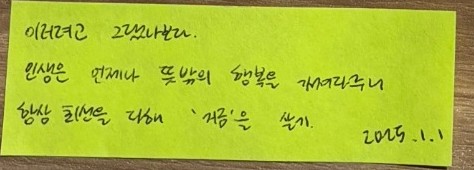 이러려고 그랬나보다.
인생은 언제나 뜻밖의 행복을 가져다주니
항상 최선을 다해 '지금'을 살기.
2025.1.1